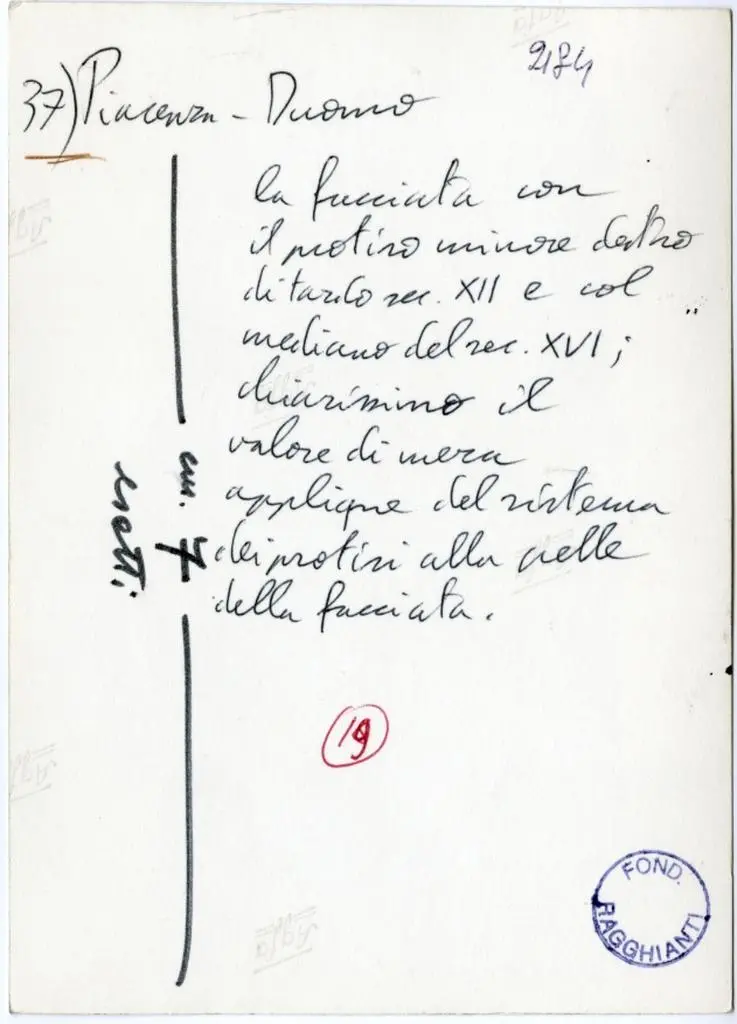 284
37) Piacenza - Duomo
la facciata con
il protiro minore destro
di tardo sec. XII e col
mediano del sec. XVI;
chiarissimo il
valore di mera
applique del sistema
dei protiri alla pelle
della facciata.
cm. 7
esatti
19
FOND.
RAGGHIANTI